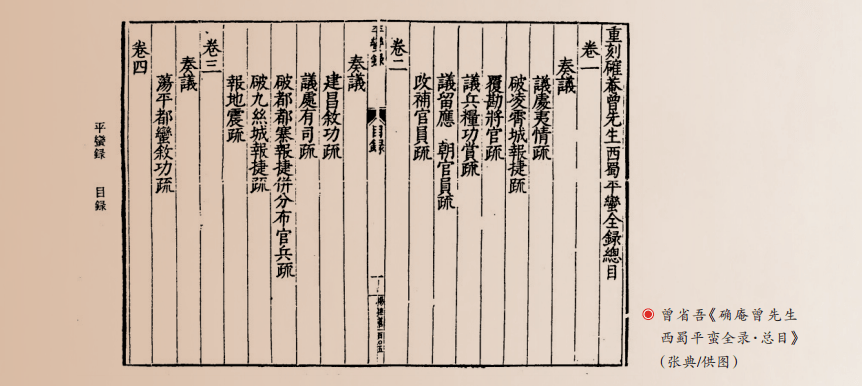 重刻確菴曾先生西蜀平蠻全録總目
卷一
奏議
議處夷情疏
破凌霄城報捷疏
覆勘將官疏
議兵糧功賞疏
議留應 朝官員疏
改補官員疏
卷二
平蠻録 目録
奏議
建昌敘功疏
議處有司疏
破都都寨報捷併分布官兵疏
破九絲城報捷疏
報地震疏
卷三
奏議
蕩平都蠻敘功疏
卷四
平蠻録 目録
曾省吾《确庵曾先生
西蜀平蛮全录·总目》
(张典/供图)